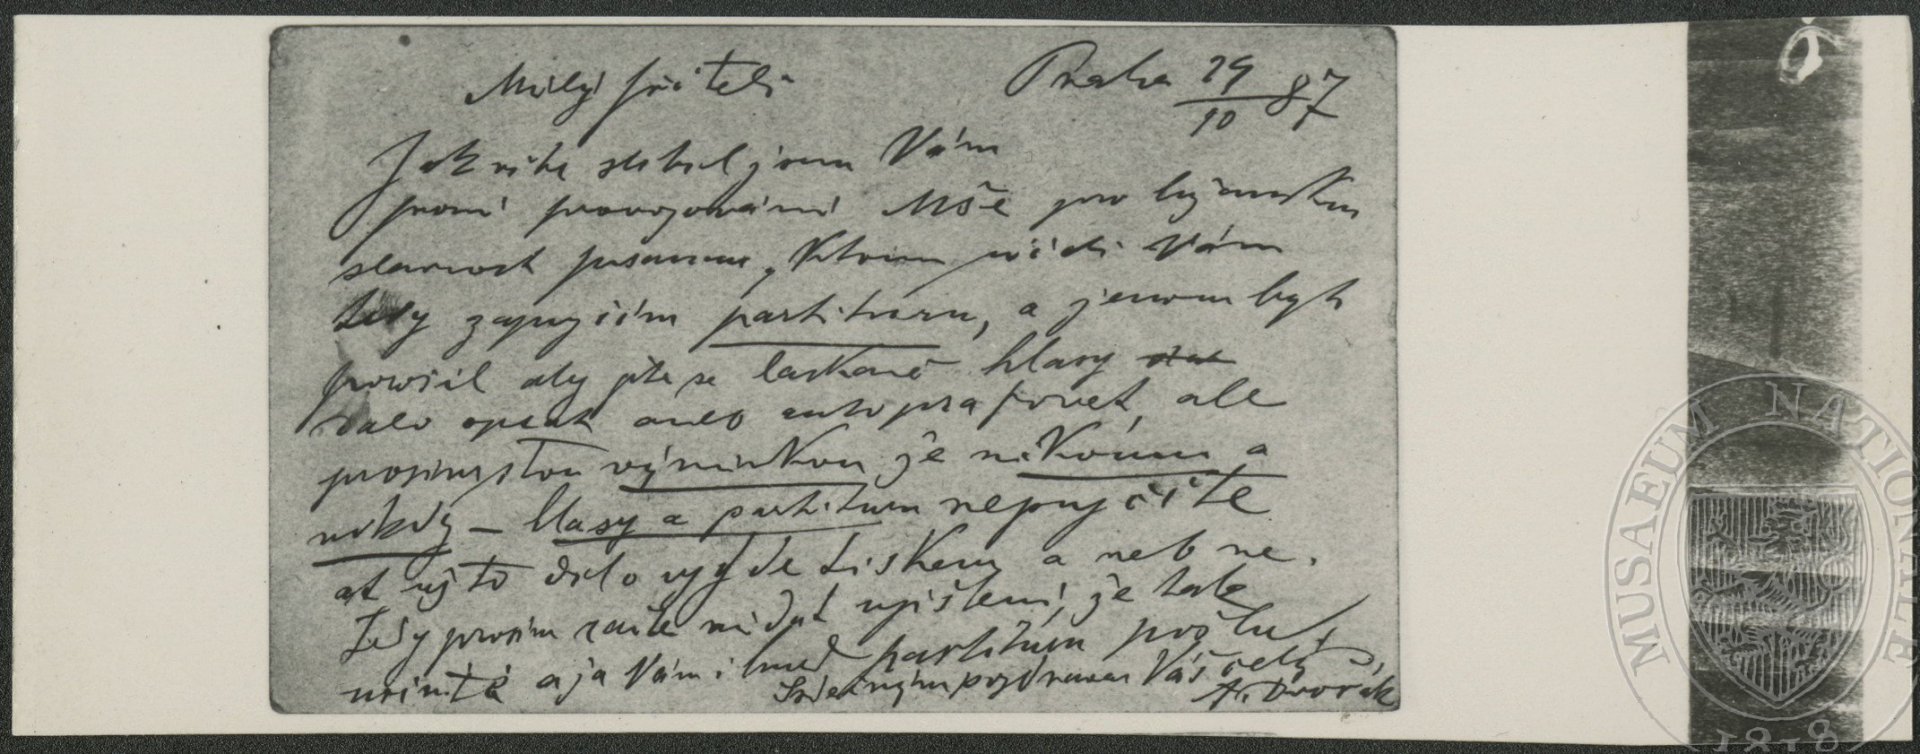 Milý příteli Praha 29/10 87
Jak víte slíbil jsem Vám
první provozování Mše pro lužanskou
slavnost psanou, Kterou příčí Vám
tedy zapujčím partituru, a jenom bych
prosil aby jste se laskavě hlasy
dalo opsat anebo autografovat, ale
prosim s tou výminkou že niKomu a
nikdy – hlasy a partituru nepujčíte
ať už to dílo vyjde tisKem a neb ne.
Tedy prosim račte mi dat ujištení, že tak
učiníte a ja Vám i hned partituru pošlu
Srdečným pozdravem Váš celý
A. Dvořák
MUSAEUM NATIONALE
1818